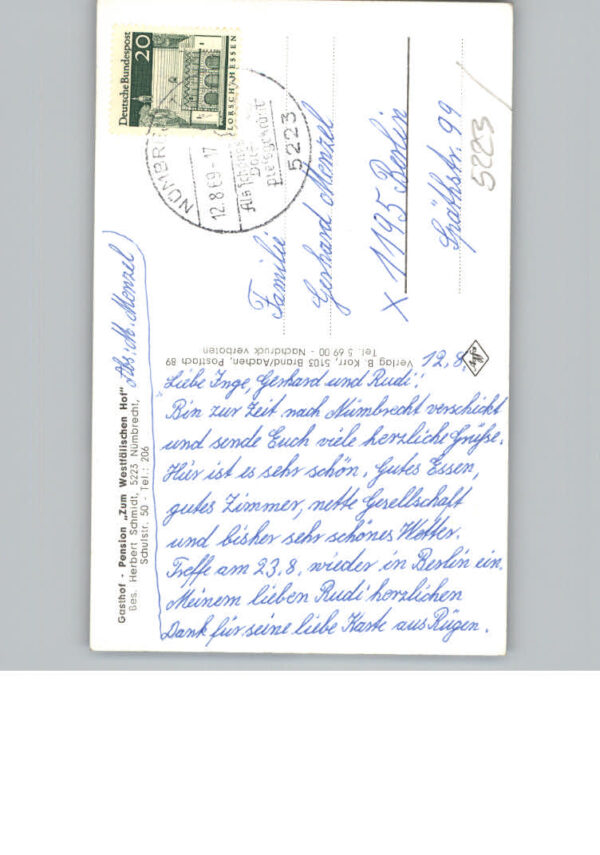 Gasthof - Pension „Zum Westfälischen Hof"
Bes. Herbert Schmidt, 5223 Nümbrecht,
Schulstr. 50 - Tel.: 206
Abs. M. Menzel
12.8.
Liebe Inge, Gerhard und Rudi!
Bin zur Zeit nach Nümbrecht verschickt
und sende Euch viele herzliche Grüße.
Hier ist es sehr schön. Gutes Essen,
gutes Zimmer, nette Gesellschaft
und bisher sehr schönes Wetter.
Treffe am 23.8. wieder in Berlin ein.
Meinem lieben Rudi herzlichen
Dank für seine liebe Karte aus Rügen.
Verlag B. Korr, 5103 Brand/Aachen, Postfach 89
Tel. 5 69 00 - Nachdruck verboten
Agfa
Deutsche Bundespost
20
LORSCH/HESSEN
12.8.69-17
5223
Familie
Gerhard Menzel
X 1195 Berlin
Späthstr. 99
5223